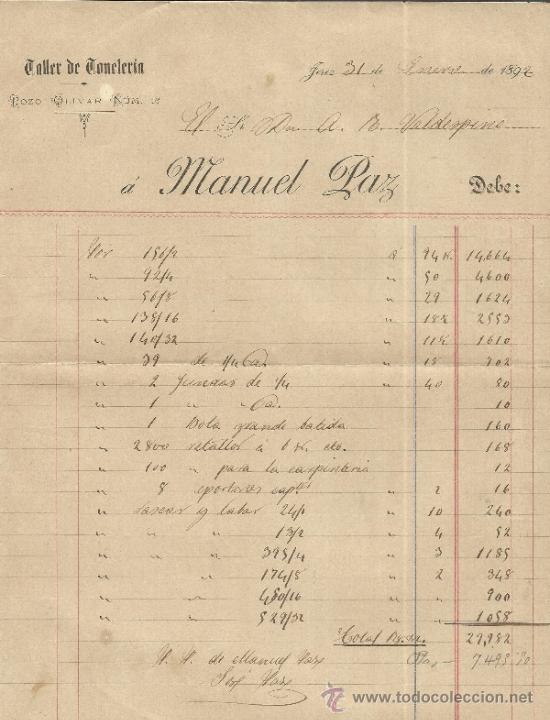 Taller de Toneleria
Jerez 31 de Enero de 1892
POZO OLIVAR NÚM. 16
El Sr Dn A. R. Valdespino
á Manuel Paz Debe:
Por 156/2 a 94 r. 14,664
" 92/4 " 50 4600
" 56/8 " 29 1624
" 138/16 " 18½ 2553
" 140/32 " 11½ 1610
" 39 de " 18 702
" 2 fundas de 1/4 " 40 80
" 1 " " 10
" 1 Bota grande batida 160
" 2800 a 6 r. cto. 168
" 100 " para la carpinteria 12
" 8 " 2 16
" y labar 24/1 " 10 240
" " " 13/2 " 4 52
" " 395/4 " 3 1185
" " 174/8 " 2 348
" " 450/16 " " 900
" " 529/32 " " 1058
Total Rs. vn. 29,982
Ptas - 7495.50
P. P. de Manuel Paz
José Paz
© www.todocoleccion.net